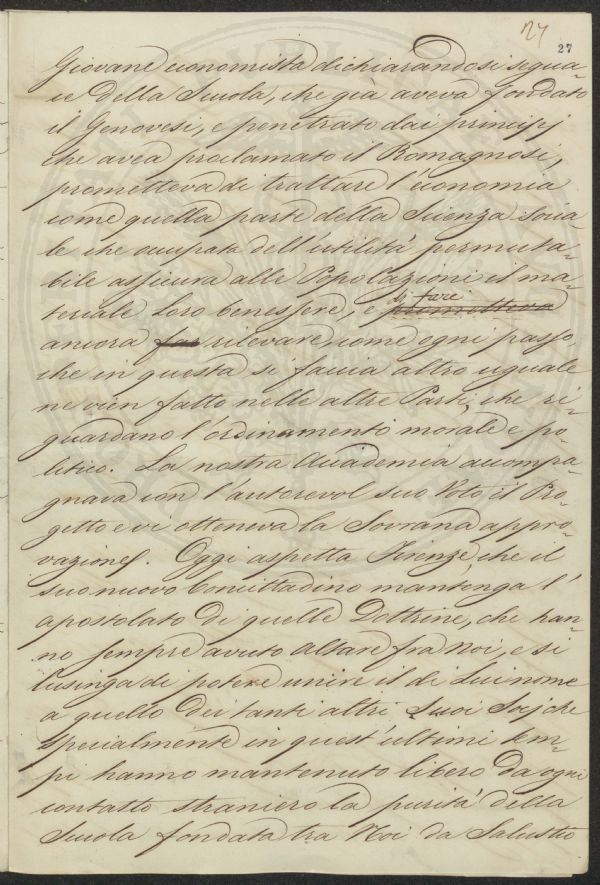 27
27
Giovane economista dichiarandosi segua-
ce della Scuola, che già aveva fondato
il Genovesi, e penetrato dai principj
che avea proclamato il Romagnosi,
prometteva di trattare l'economia
come quella parte della Scienza Socia
le che occupata dell'utilità permuta-
bile assicura alle Popolazioni il ma-
teriale Loro benessere, e prometteva
di fare
ancora far rilevare, come ogni passo,
che in questa si faccia altro uguale
ne vien fatto nelle altre Parti, che ri-
guardano l'ordinamento morale e po-
litico. La nostra Accademia accompa-
gnava con l'autorevol suo Voto il Pro-
getto e vi otteneva la Sovrana appro-
vazione. Oggi aspetta Firenze che il
suo nuovo Concittadino mantenga l'
apostolato di quelle Dottrine, che han-
no sempre avuto altare fra Noi, e si
lusinga di potere unire il di Lui nome
a quello dei tanti altri Suoi Soci che
specialmente in quest'ultimi tem-
pi hanno mantenuto libero da ogni
contatto straniero la purità della
Scuola fondata tra Noi da Salustio